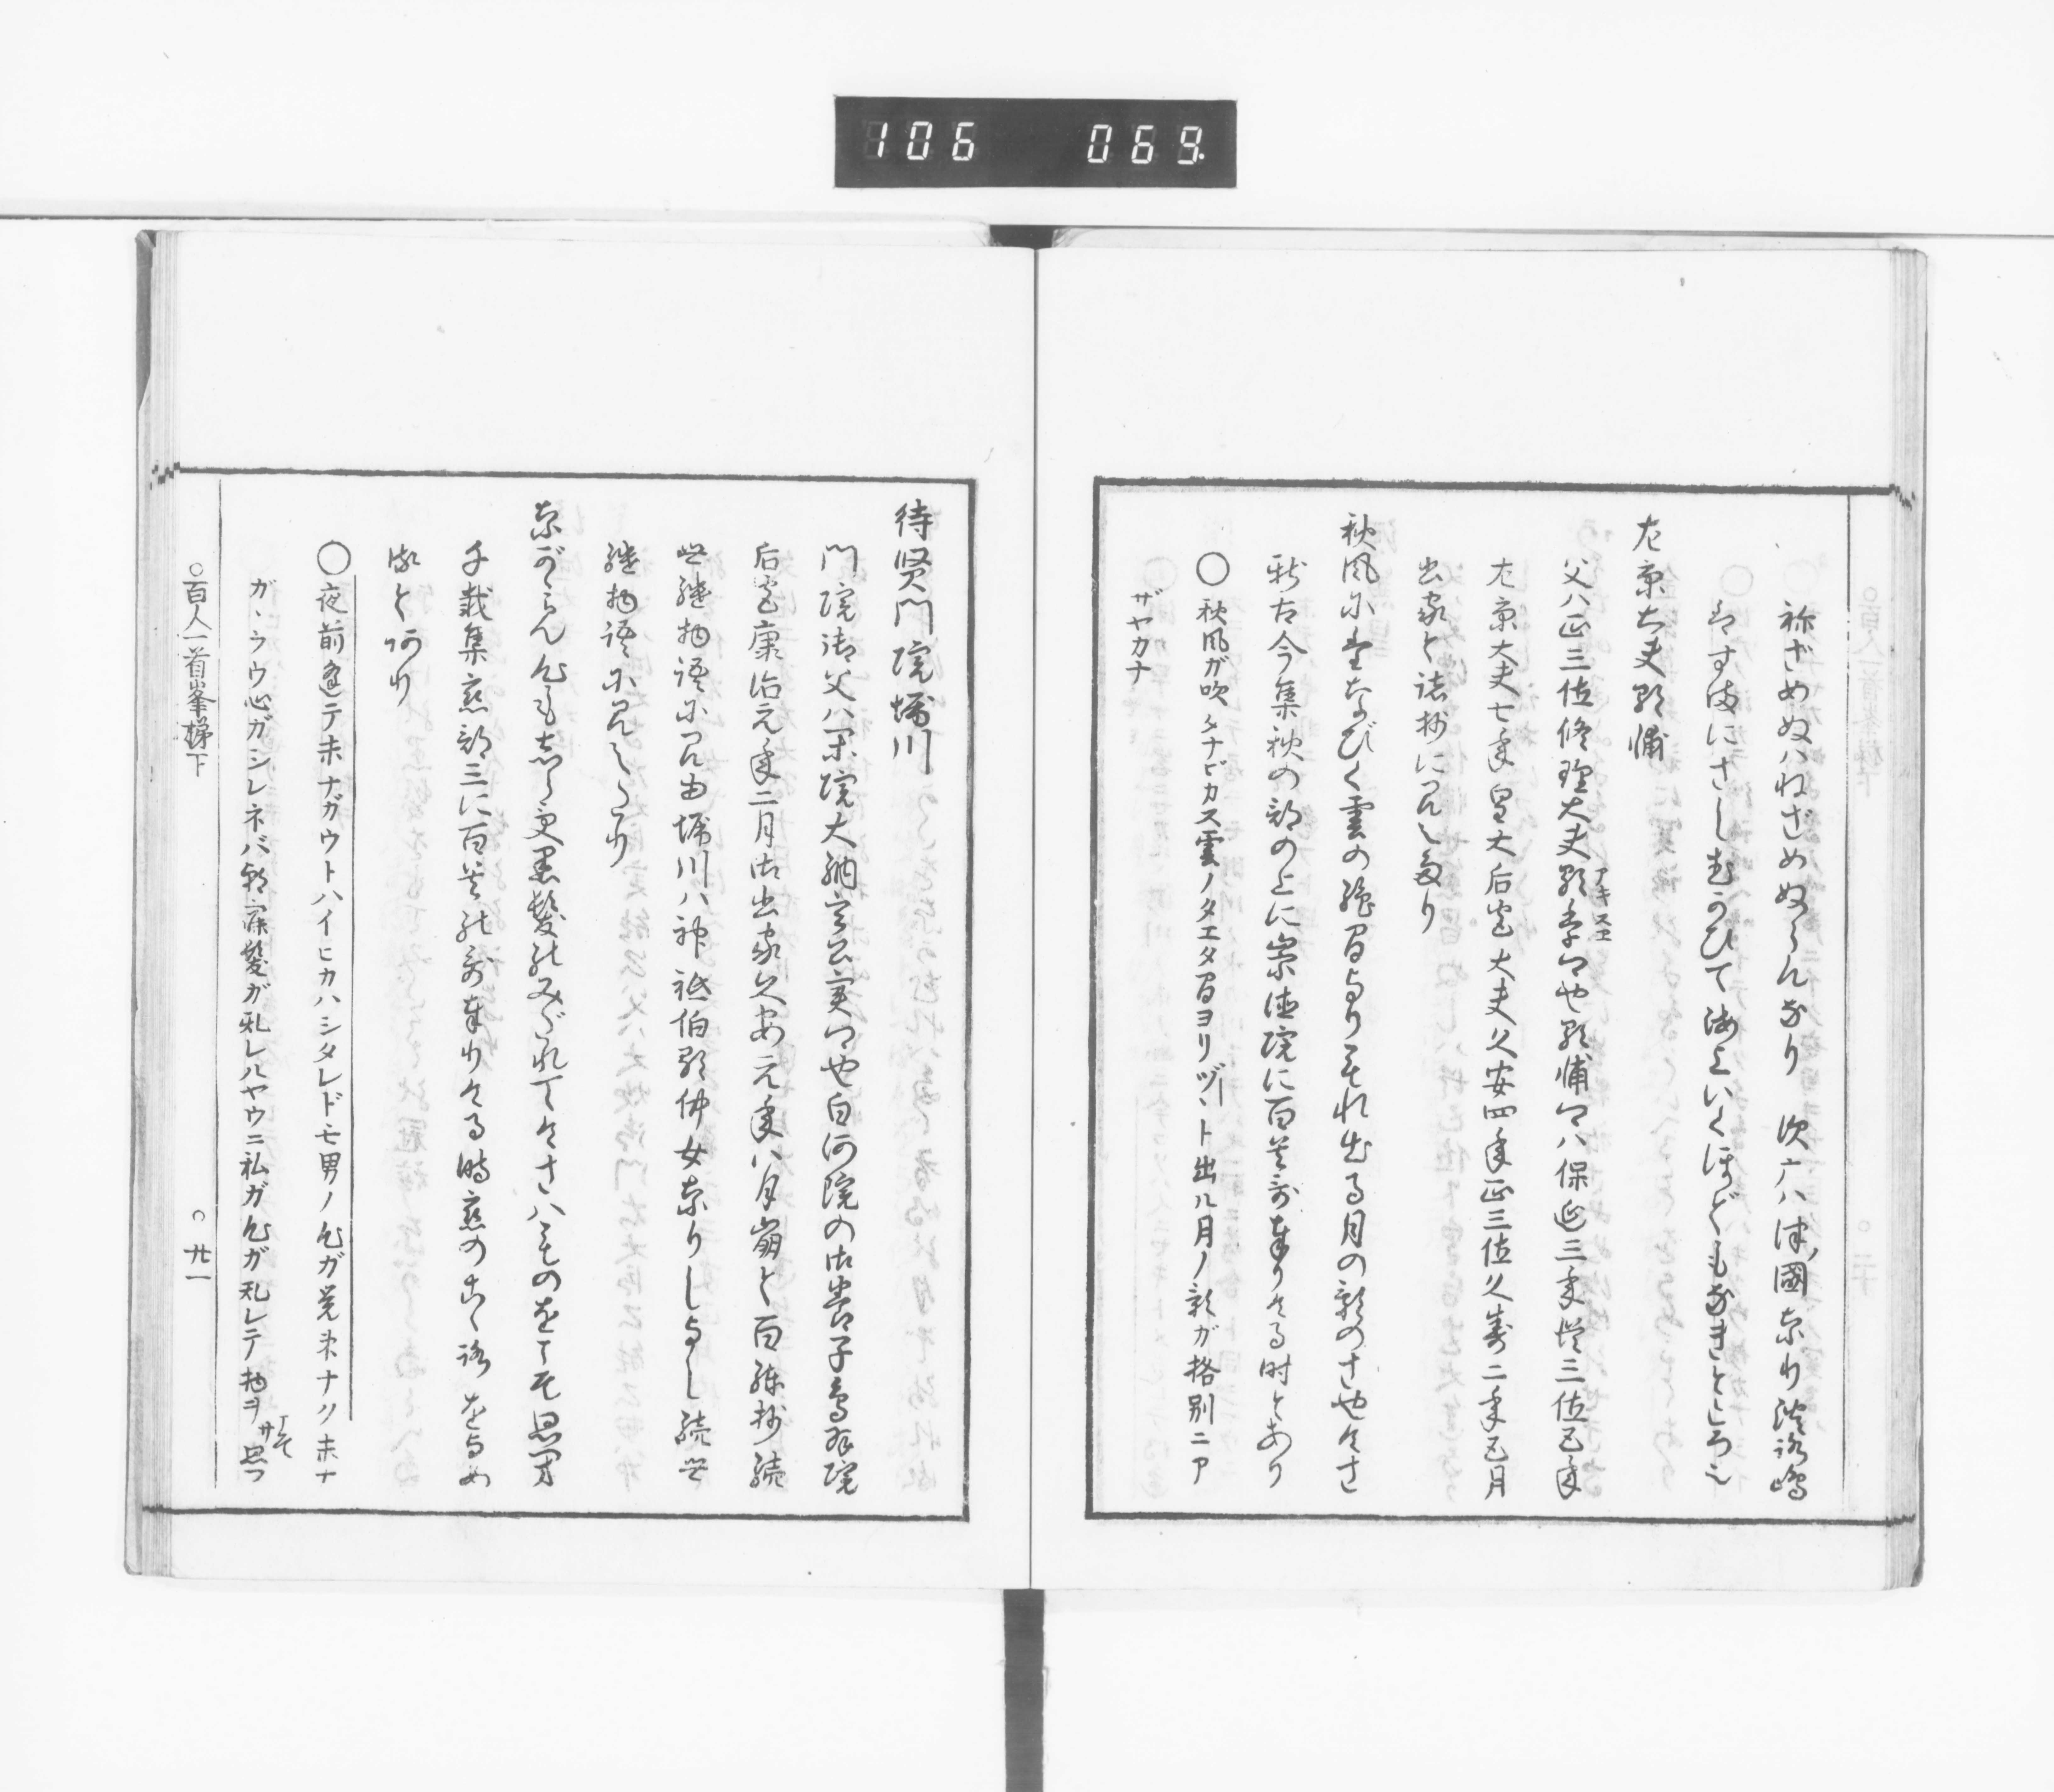 106 069
祢ざめぬハねざめぬらんなり 次六ハ津ノ國なり淡路嶋
ハすまにさしむかひて海上いくほどもなきところ也
左京大夫顕輔
父ハ正三位修理大夫顕季卿也顕輔卿ハ保延三年従三位五年
アキスエ
左京大夫七年皇大后宮大夫久安四年正三位久寿二年五月
出家と諸抄に見え多り
秋風に堂なびく雲の絶間よりもれ出る月の影のさやけさ
新古今集秋の部の上に崇徳院に百首哥奉りける時とあり
〇秋風ガ吹タナビカス雲ノタエタ間ヨリヅヽト出ル月ノ影ガ格別ニア
ザヤカナ
待賢門院堀川
門院御父ハ閑院大納言公実卿也白河院の御養子鳥羽院
后宮康治元年二月御出家久安元年八月崩と百練抄続
世継物語に見ゆ堀川ハ神祇伯顕仲女なりしよし続世
継物語に見えたり
ながゝらん心もしら受黒髪のみだれてけさハものをこそ思へ
千載集恋部三に百首の哥奉りける時恋のこゝろをよめ
ると阿り
〇夜前逢テ末ナガウトハイヒカハシタレドモ男ノ心ガ覚束ナク末ナ
ガヽラウ心ガシレネバ朝寐髪ガ乱レルヤウニ私ガ心ガ乱レテ物ヲ思フ
〇百人一首峯梯下
〇廿一